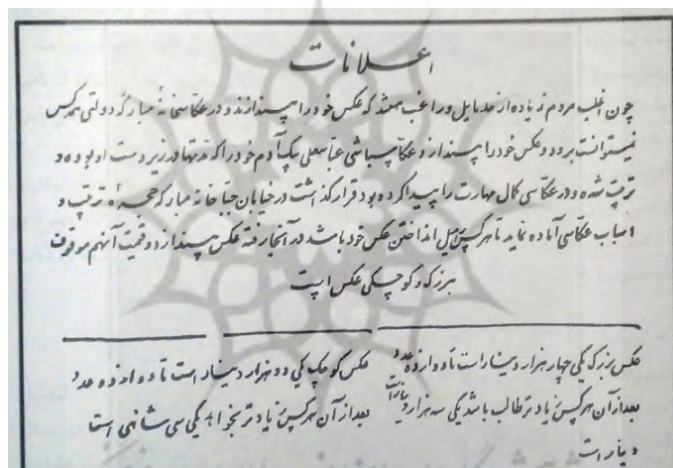 اعلانات
چون اغلب مردم زیاده از حد مایل و راغب هستند که عکس خود را بیندازند و در عکاسخانهٔ مبارکه دولتی همه کس
نمیتوانست برود و عکس خود را بیندازد عکاسباشی عباسعلی بیک آدم خود را که مدتها در زیر دست او بوده و
تربیت شده و در عکاسی کمال مهارت را پیدا کرده بود قرار گذاشت در خیابان جباخانهٔ مبارکه حجرهٔ ترتیب و
اسباب عکاسی آماده نماید تا هر کس میل انداختن عکس خود باشد در آنجا رفته عکس بیندازد و قیمت آنهم موقوف
ببزرکی و کوچکی عکس است
عکس بزرک یکی چهار هزار دینار است تا دوازده عدد
بعد از آن هر کس زیادتر طالب باشد یکی سه هزار دینار است
عکس کوچک یکی دو هزار دینار است تا دوازده عدد
بعد از آن هر کس زیادتر بخواهد یکی سی شاهی است